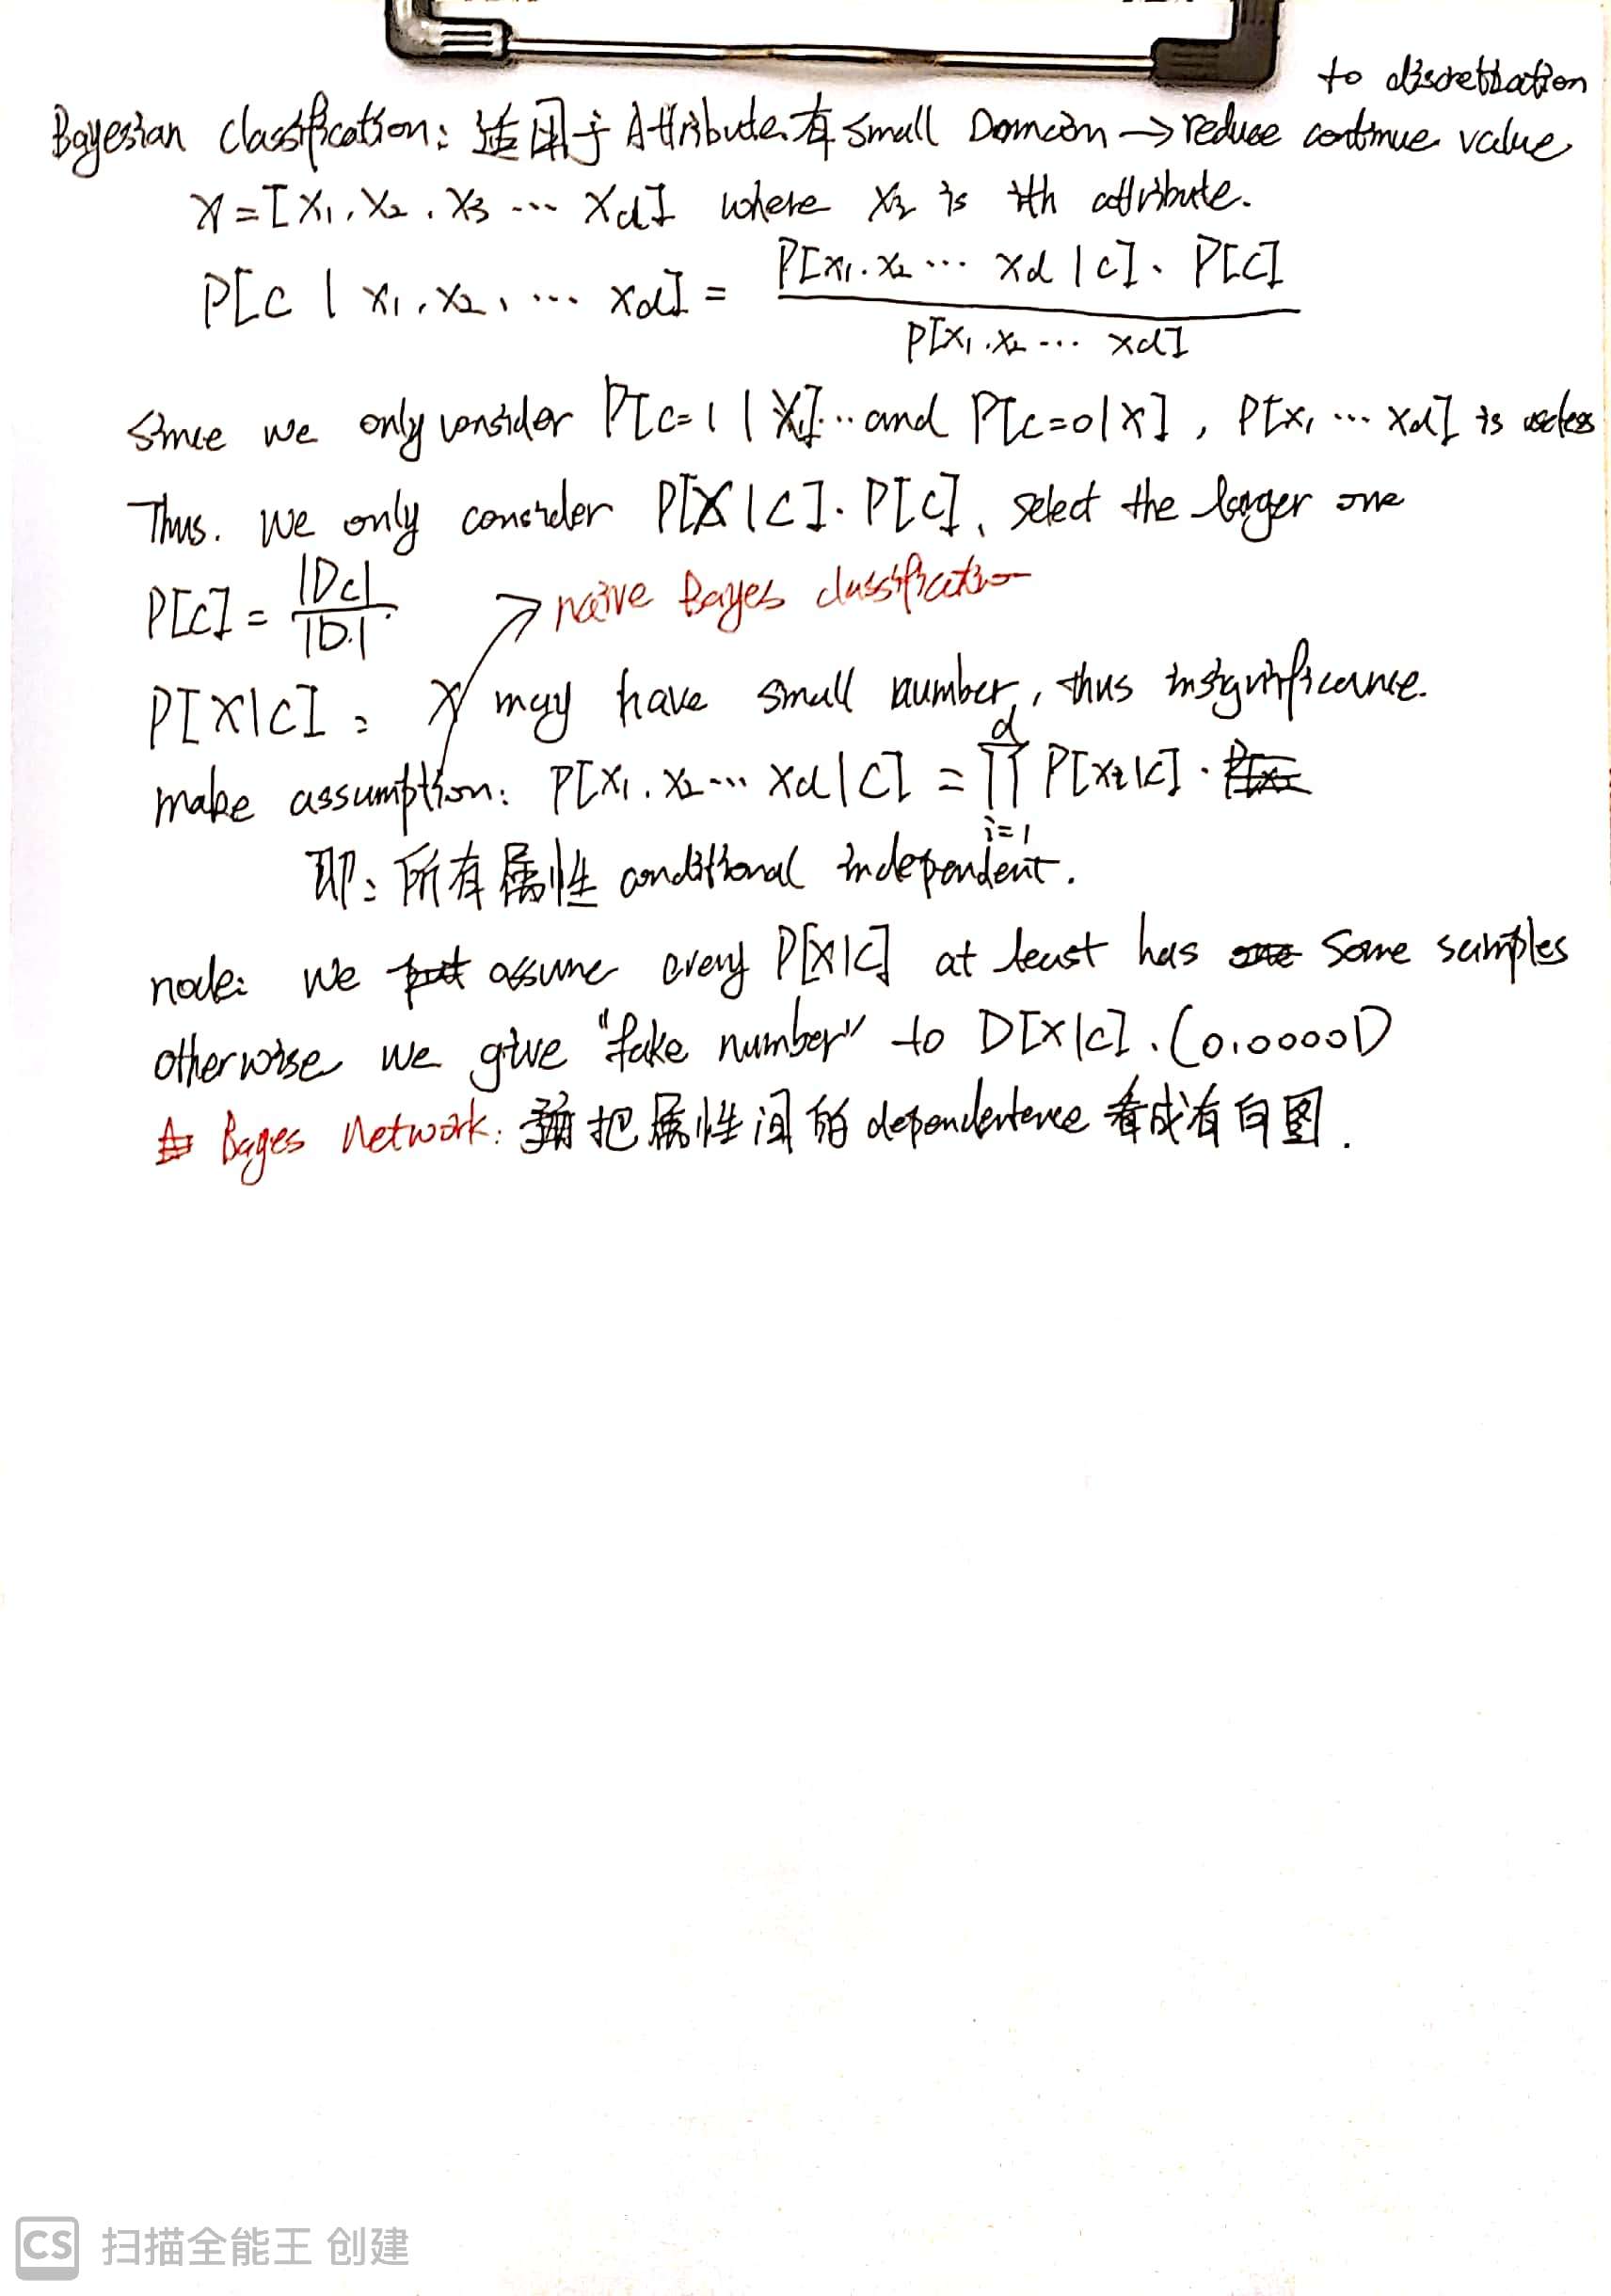 to discretization
Bayesian Classification: 适用于 Attribute 有 small Domain → reduce continue value
X = [X₁, X₂, X₃ ... X_d] where Xᵢ is ith attribute.
P[C | X₁, X₂, ... X_d] = P[X₁, X₂ ... X_d | C] · P[C] / P[X₁, X₂ ... X_d]
Since we only consider P[C=1 | X] .. and P[C=0 | X], P[X₁ ... X_d] is useless
Thus. We only consider P[X | C] · P[C], select the larger one
P[C] = |D_C| / |D|
naive Bayes classification
P[X|C]: X may have small number, thus insignificance.
make assumption: P[X₁, X₂ ... X_d | C] = ∏_{i=1}^{d} P[Xᵢ|C] ·
即: 所有属性 conditional independent.
node: we assume every P[X|C] at least has some samples
otherwise we give "fake number" to D[X|C]. (0.00001)
Bayes Network: 把属性间的 dependentence 看成有向图.
CS 扫描全能王 创建